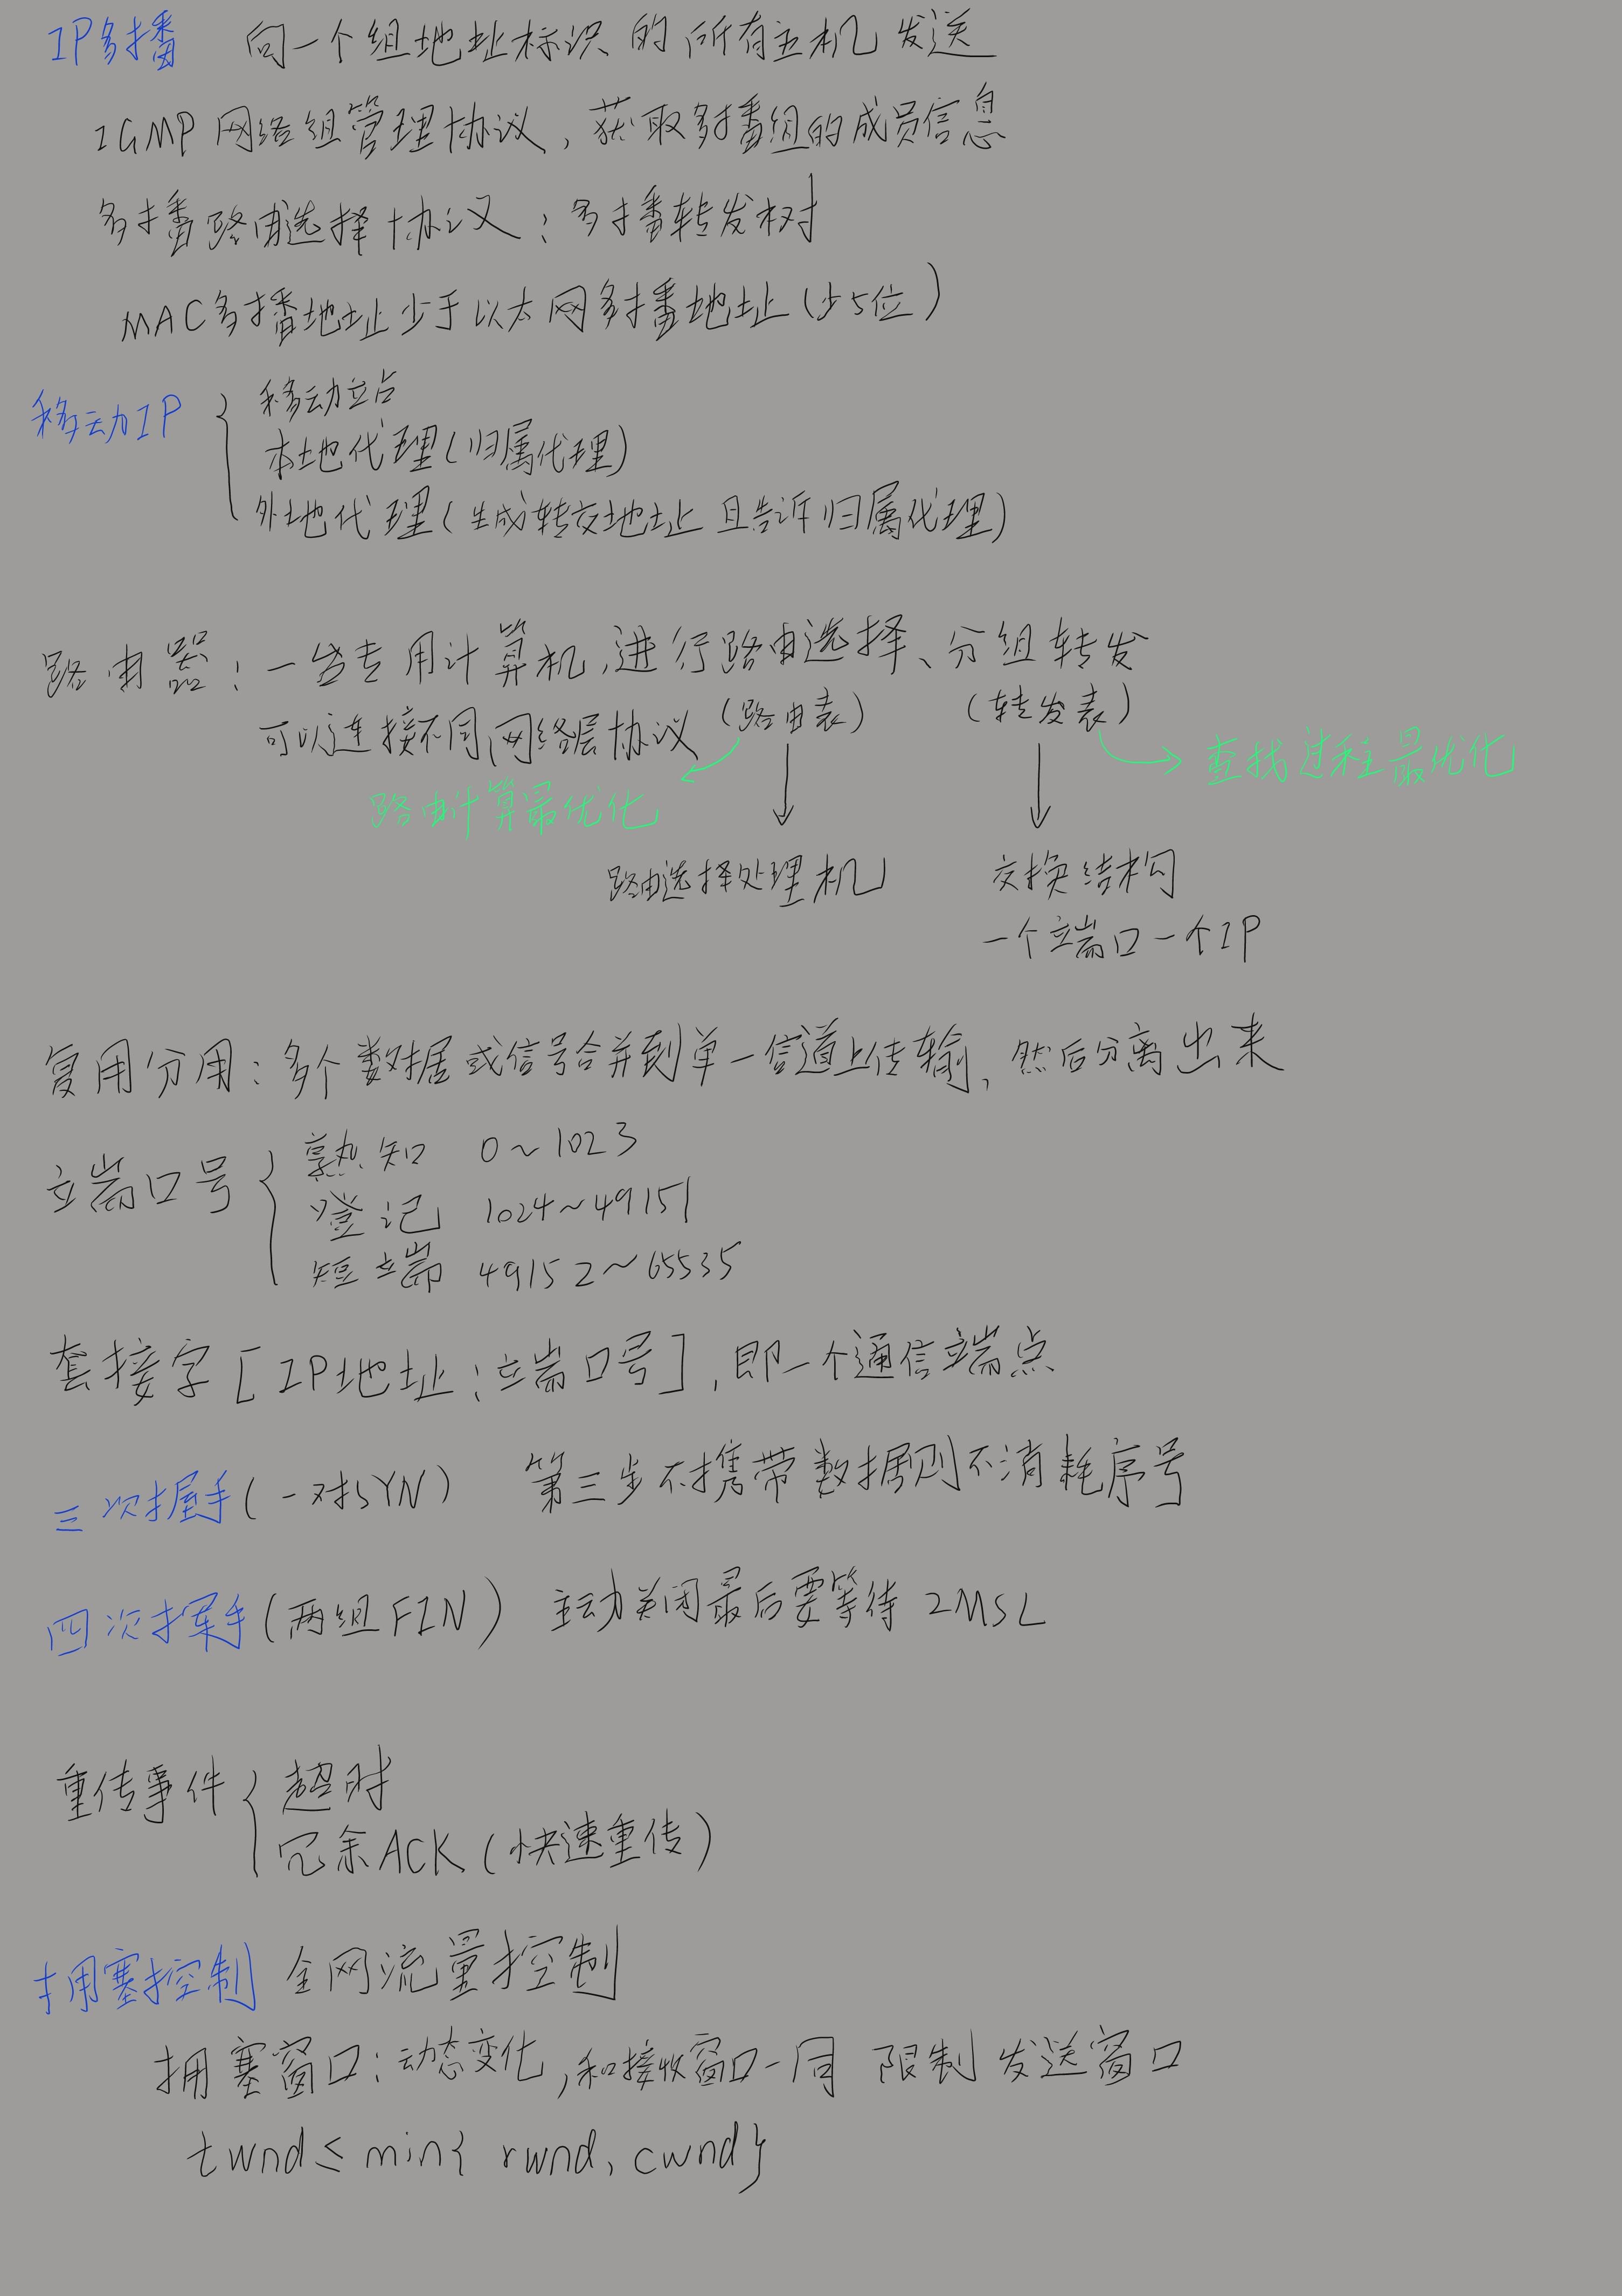 IP多播 向一个组地址标识的所有主机发送
IGMP 网络组管理协议，获取多播组的成员信息
多播路由选择协议：多播转发树
MAC多播地址少于以太网多播地址(少5位)
移动IP
移动站
本地代理(归属代理)
外地代理(生成转交地址且告诉归属代理)
路由器：一台专用计算机，进行路由选择、分组转发
可以连接不同网络层协议 (路由表) (转发表)
路由计算最优化
查找过程最优化
路由选择处理机 交换结构
一个端口一个IP
复用分用：多个数据或信号合并到单一信道上传输，然后分离出来
端口号
熟知 0~1023
登记 1024~49151
短端 49152~65535
套接字[IP地址:端口号]，即一个通信端点
三次握手(一对SYN) 第三步不携带数据则不消耗序号
四次挥手(两组FIN) 主动关闭最后要等待2MSL
重传事件
超时
冗余ACK(快速重传)
拥塞控制 全网流量控制
拥塞窗口：动态变化，和接收窗口一同 限制发送窗口
twnd ≤ min{ rwnd, cwnd}